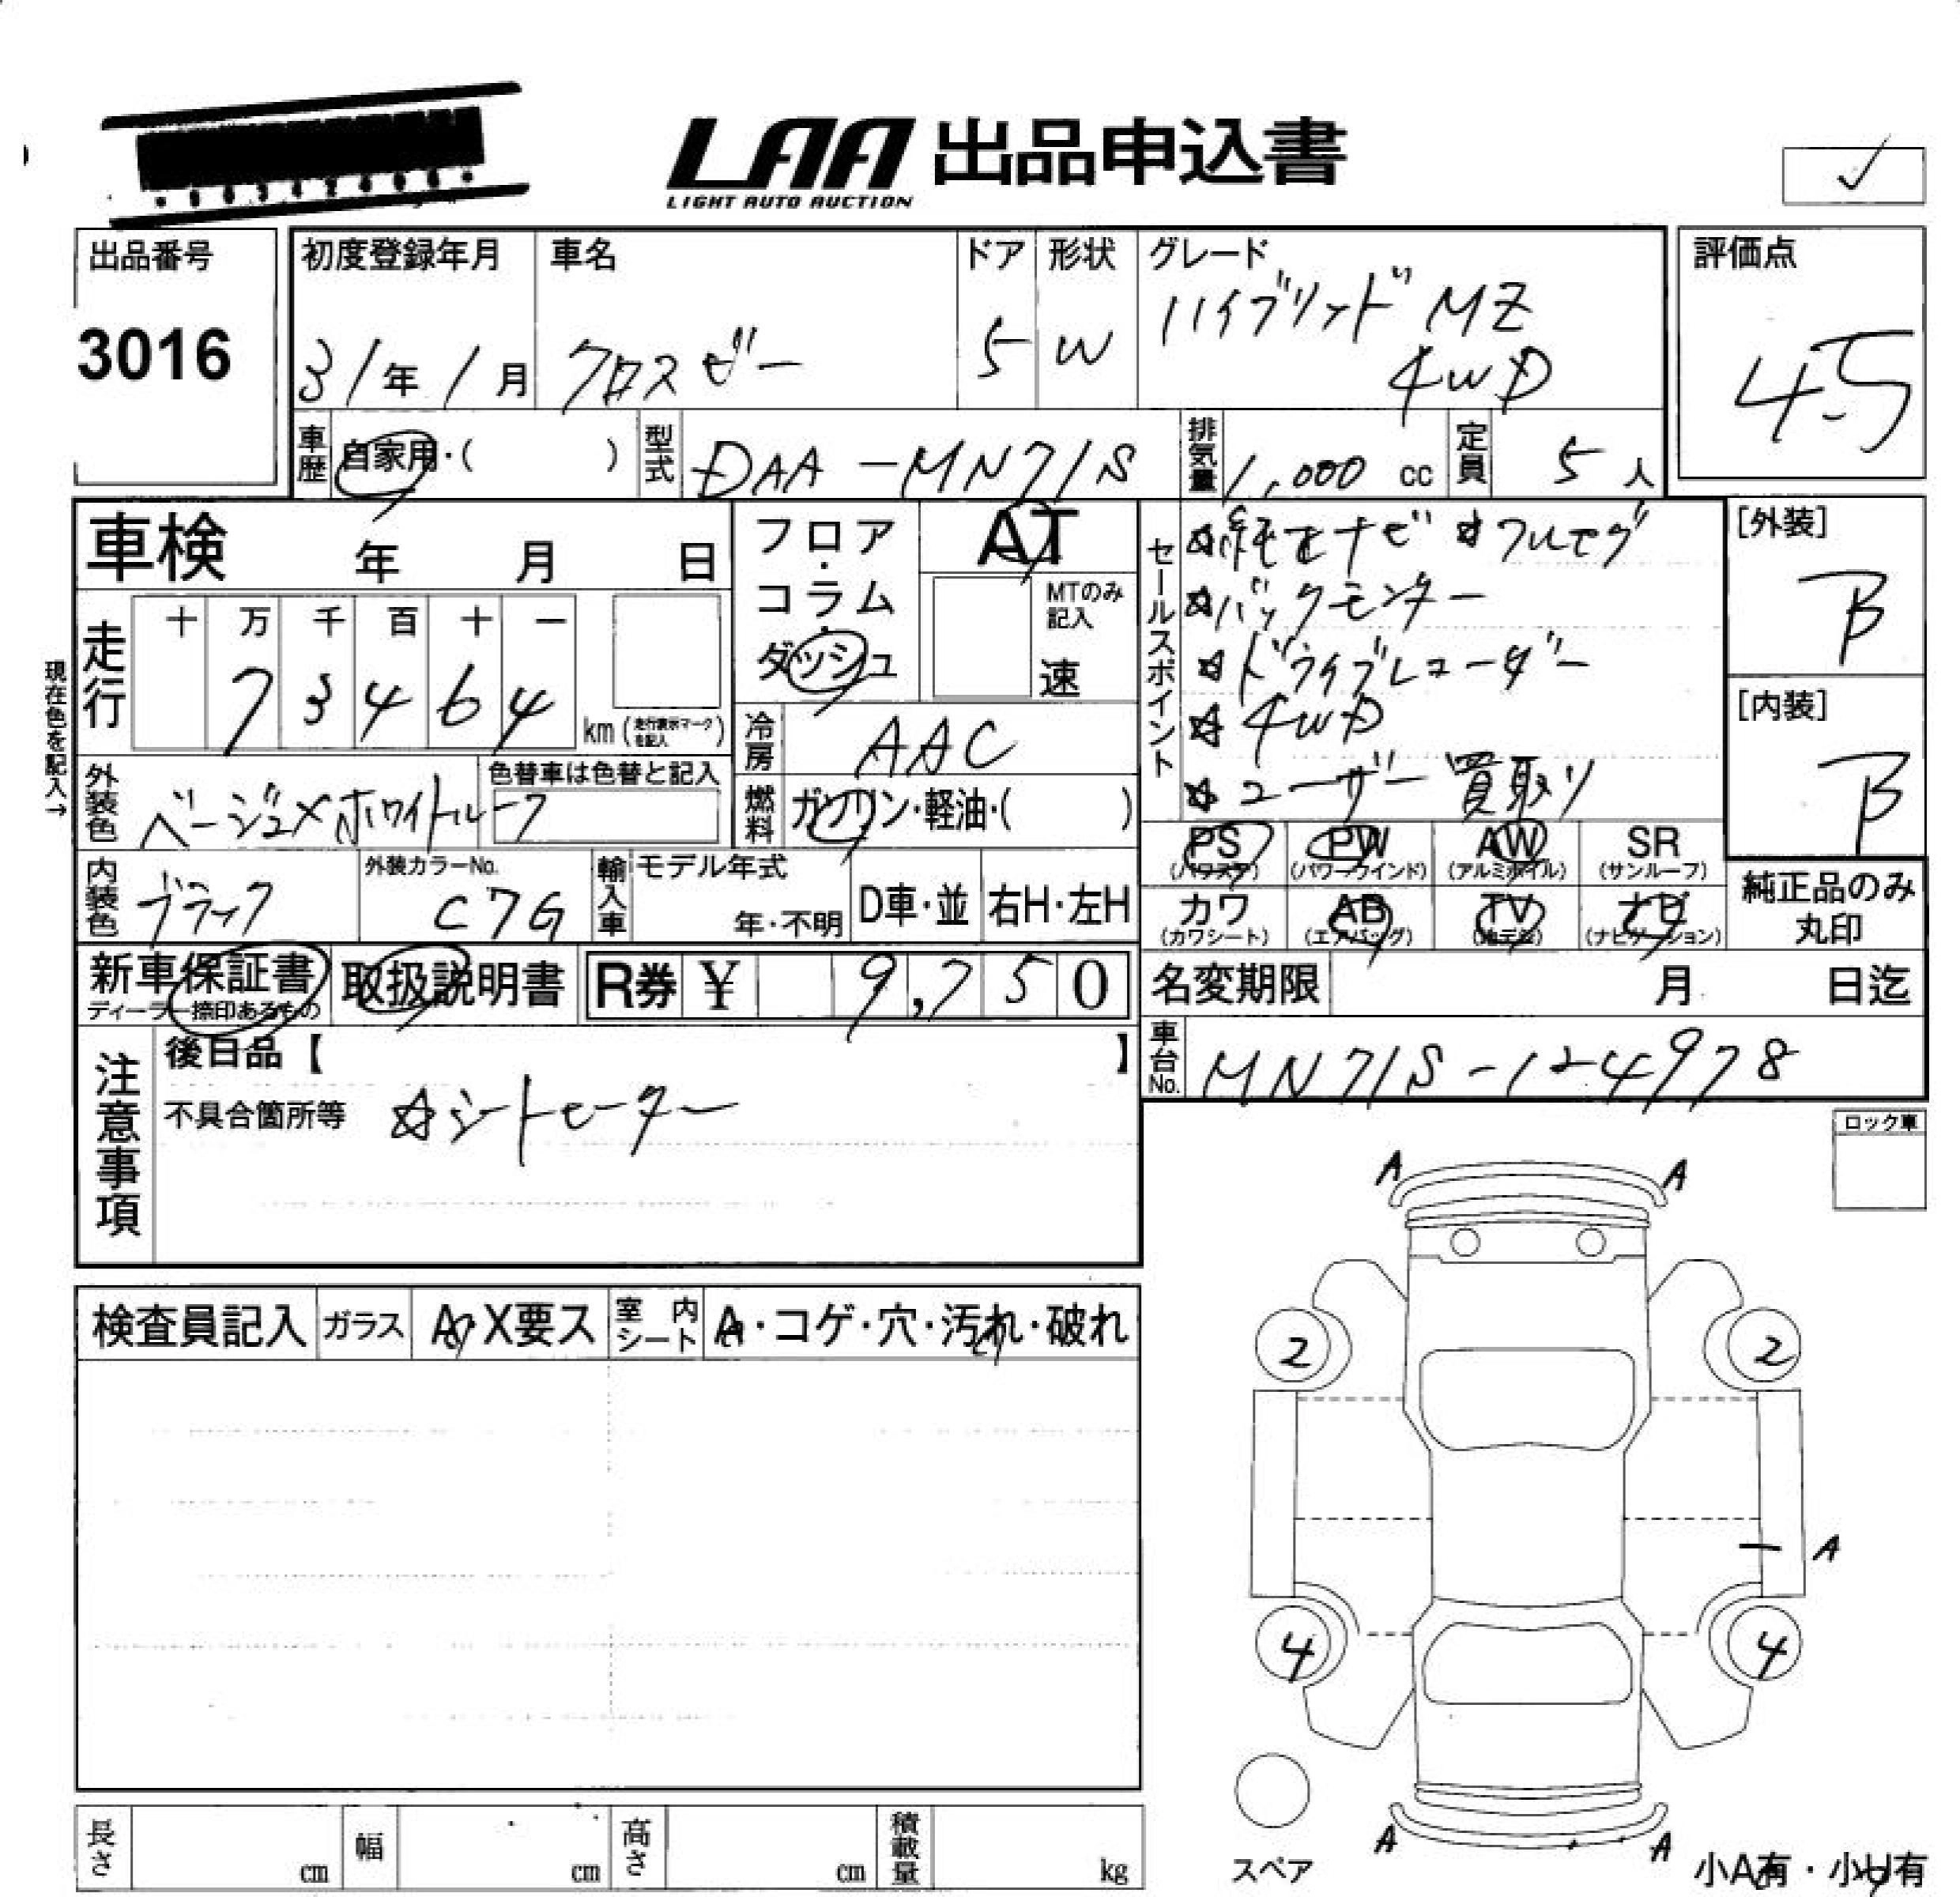 LAA 出品申込書
LIGHT AUTO AUCTION
出品番号
3016
初度登録年月
31年1月
車名
クロスビー
ドア
5
形状
W
グレード
ハイブリッド MZ
4WD
評価点
4.5
車歴
自家用・( )
型式
DAA-MN71S
排気量
1,000 cc
定員
5 人
車検 年 月 日
フロア・コラム・ダッシュ
AT
MTのみ記入
速
セールスポイント
☆純正ナビ ☆フルセグ
☆バックモニター
☆ドライブレコーダー
☆4WD
☆ユーザー買取り
[外装]
B
[内装]
B
現在色を記入→
走行
十 万 千 百 十 一
7 3 4 6 4
km (走行表示マークを記入)
冷房
AAC
外装色
ベージュ×ホワイトルーフ
色替車は色替と記入
燃料
ガソリン・軽油・( )
PS
(パワステ)
PW
(パワーウインド)
AW
(アルミホイル)
SR
(サンルーフ)
カワ
(カワシート)
AB
(エアバッグ)
TV
(地デジ)
ナビ
(ナビゲーション)
純正品のみ
丸印
内装色
ブラック
外装カラーNo.
C7G
輸入車
モデル年式
年・不明
D車・並
右H・左H
新車保証書
ディーラー捺印あるもの
取扱説明書
R券 ¥ 9,750
名変期限 月 日迄
車台No.
MN71S-124978
注意事項
後日品【 】
不具合箇所等 ☆シートヒーター
ロック車
A A
検査員記入
ガラス
A・X要ス
室内シート
A・コゲ・穴・汚れ・破れ
2 2
A
4 4
A A
スペア
小A有・小U有
長さ cm
幅 cm
高さ cm
積載量 kg